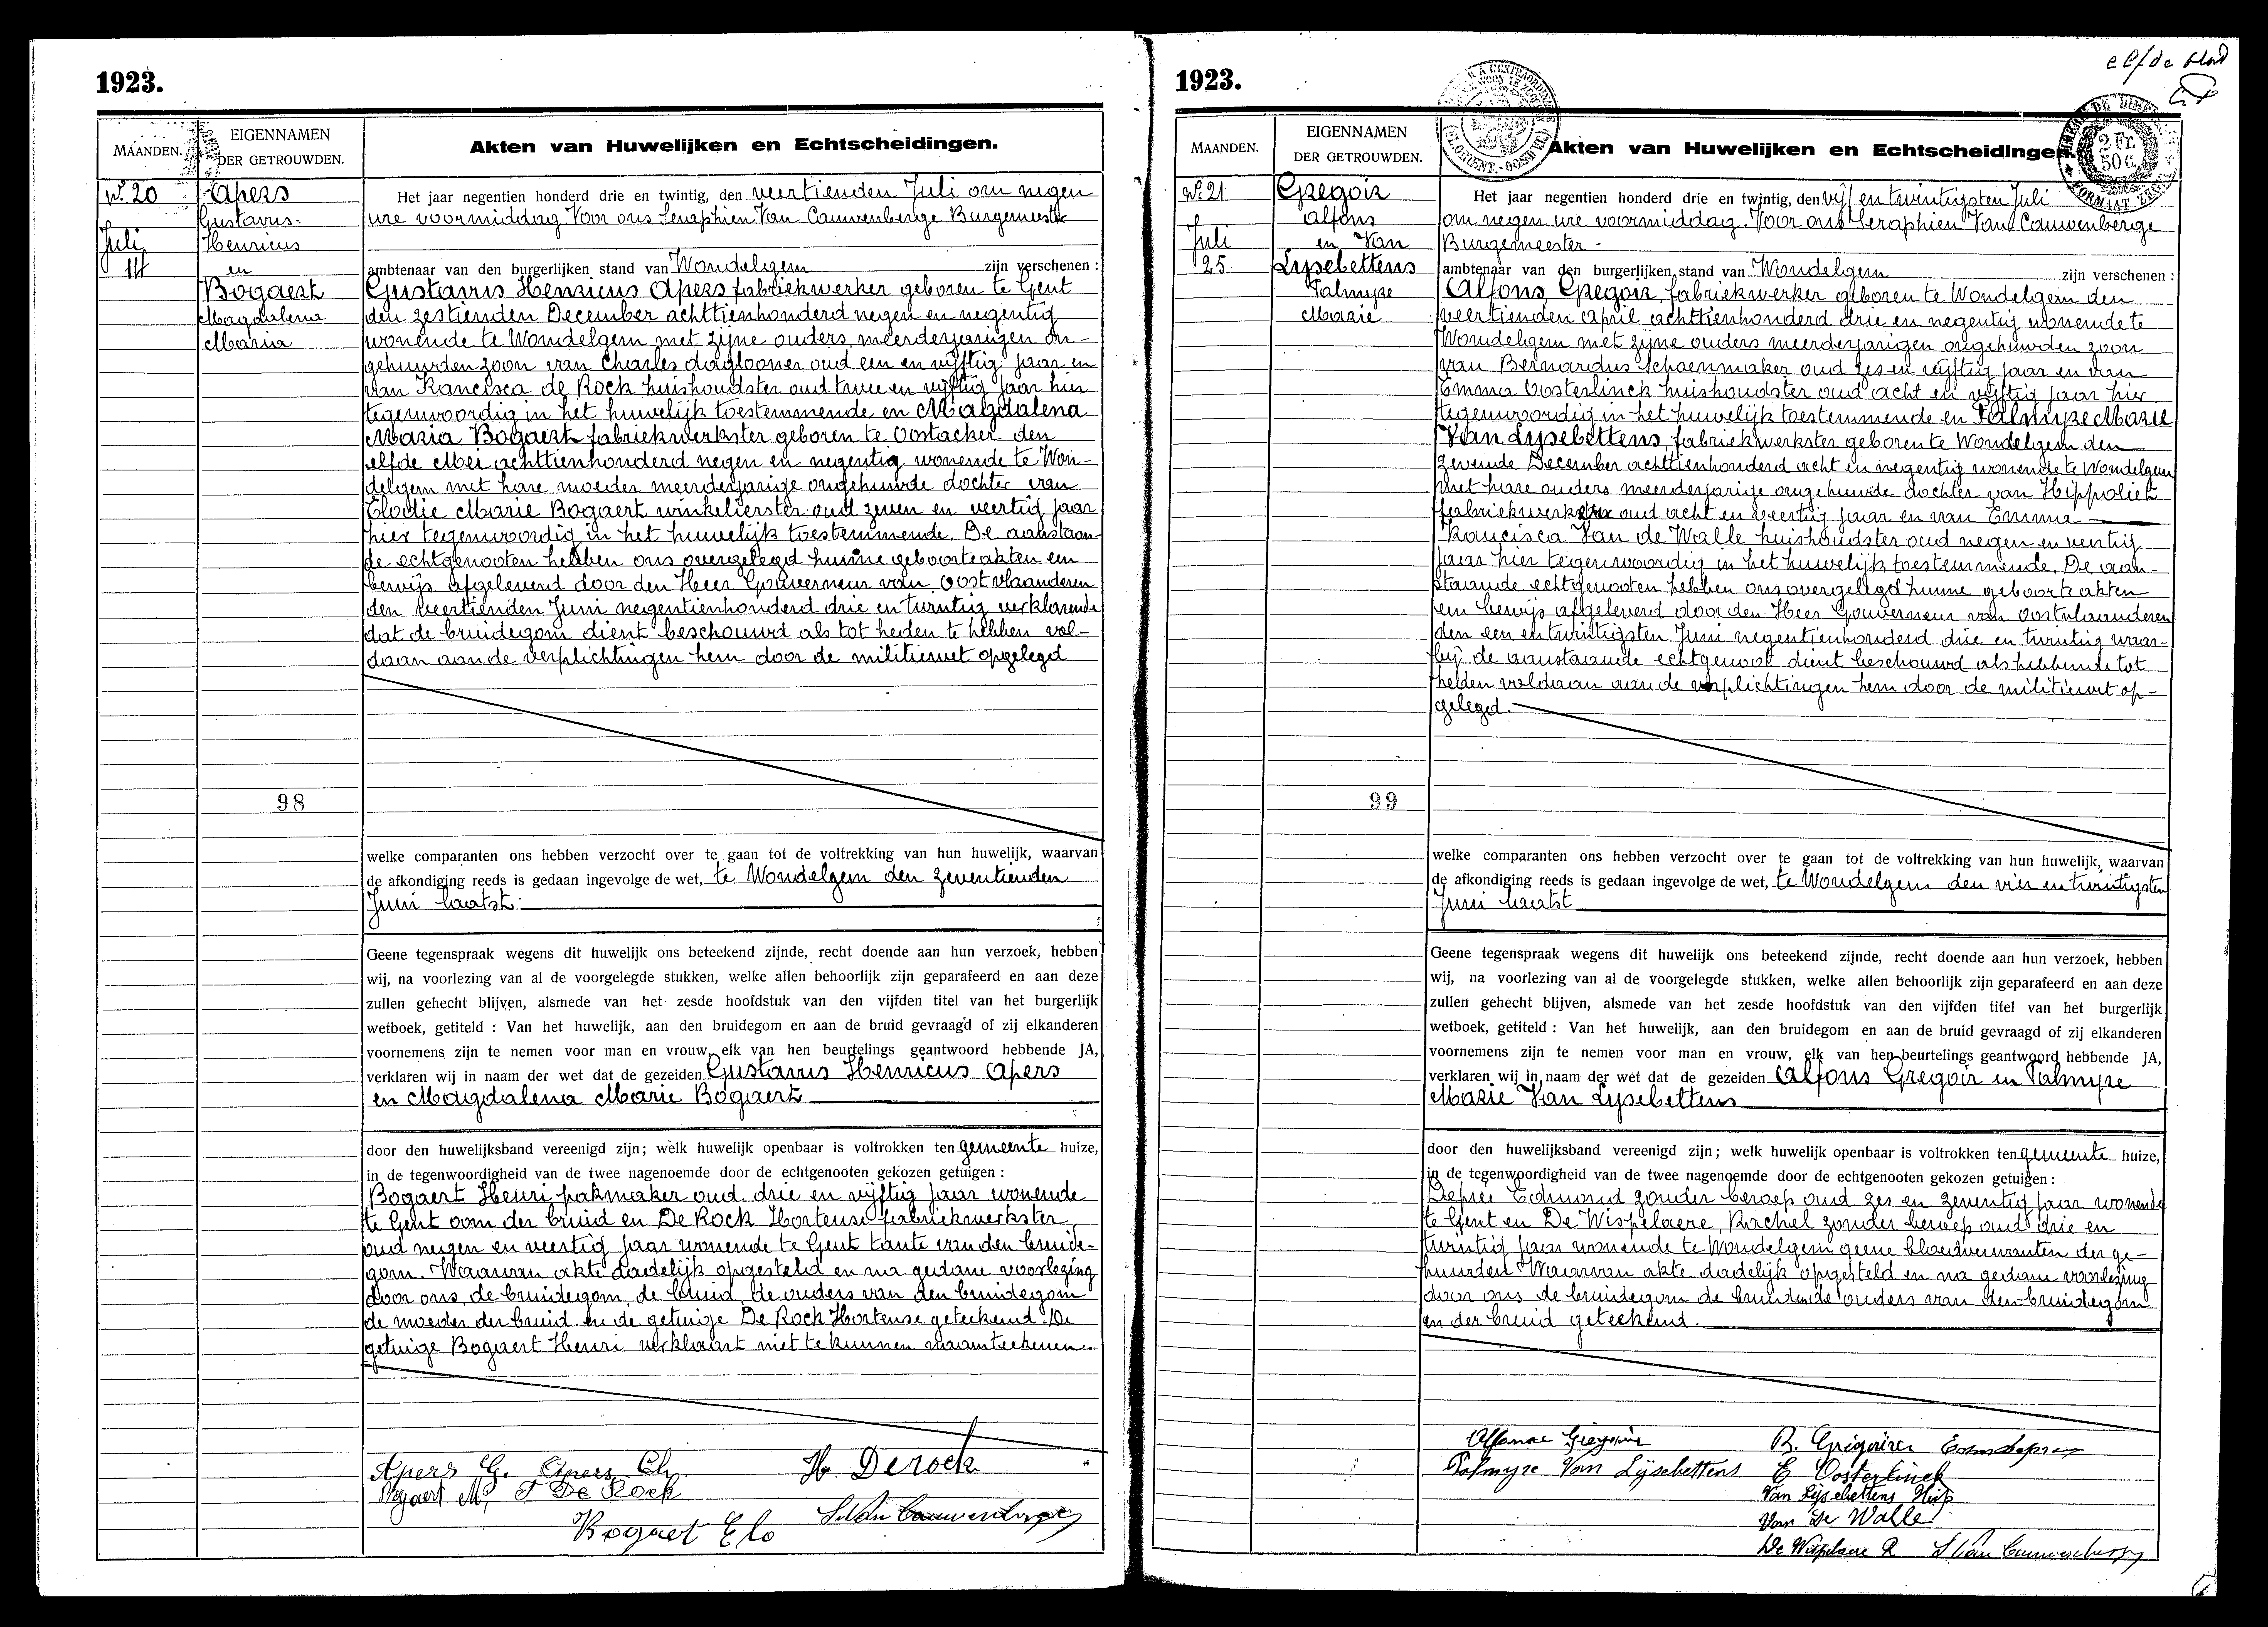 1923.
MAANDEN.
EIGENNAMEN
DER GETROUWDEN.
Akten van Huwelijken en Echtscheidingen.
No. 20
Juli
14
Apers
Gustavus
Henricus
en
Bogaert
Magdalena
Maria
98
Het jaar negentien honderd drie en twintig, den veertienden Juli om negen
ure voormiddag Voor ons Seraphien Van Cauwenberge Burgemeester
ambtenaar van den burgerlijken stand van Wondelgem zijn verschenen :
Gustavus Henricus Apers fabriekwerker geboren te Gent
den zestienden December achttienhonderd negen en negentig
wonende te Wondelgem met zijne ouders, meerderjarigen on-
gehuwden zoon van Charles daglooner oud een en vijftig jaar en
van Francisca de Rock huishoudster oud twee en vijftig jaar hier
tegenwoordig in het huwelijk toestemmende en Magdalena
Maria Bogaert fabriekwerkster geboren te Oostacker den
elfde Mei achttienhonderd negen en negentig wonende te Won-
delgem met hare moeder meerderjarige ongehuwde dochter van
Elodie Marie Bogaert winkelierster oud zeven en veertig jaar
hier tegenwoordig in het huwelijk toestemmende. De aanstaan-
de echtgenooten hebben ons overgelegd hunne geboorteakten een
bewijs afgeleverd door den Heer Gouverneur van Oostvlaanderen
den veertienden Juni negentienhonderd drie en twintig verklarende
dat de bruidegom dient beschouwd als tot heden te hebben vol-
daan aan de verplichtingen hem door de militiewet opgelegd
welke comparanten ons hebben verzocht over te gaan tot de voltrekking van hun huwelijk, waarvan
de afkondiging reeds is gedaan ingevolge de wet, te Wondelgem den zeventienden
Juni laatst.
Geene tegenspraak wegens dit huwelijk ons beteekend zijnde, recht doende aan hun verzoek, hebben
wij, na voorlezing van al de voorgelegde stukken, welke allen behoorlijk zijn geparafeerd en aan deze
zullen gehecht blijven, alsmede van het zesde hoofdstuk van den vijfden titel van het burgerlijk
wetboek, getiteld : Van het huwelijk, aan den bruidegom en aan de bruid gevraagd of zij elkanderen
voornemens zijn te nemen voor man en vrouw, elk van hen beurtelings geantwoord hebbende JA,
verklaren wij in naam der wet dat de gezeiden Gustavus Henricus Apers
en Magdalena Marie Bogaert
door den huwelijksband vereenigd zijn; welk huwelijk openbaar is voltrokken ten gemeente huize,
in de tegenwoordigheid van de twee nagenoemde door de echtgenooten gekozen getuigen :
Bogaert Henri pakmaker oud drie en vijftig jaar wonende
te Gent oom der bruid en De Rock Hortense fabriekwerkster
oud negen en veertig jaar wonende te Gent tante van den bruide-
gom. Waarvan akte dadelijk opgesteld en na gedane voorlezing
door ons, de bruidegom, de bruid, de ouders van den bruidegom
de moeder der bruid en de getuige De Rock Hortense geteekend. De
getuige Bogaert Henri verklaart niet te kunnen naamteekenen.
Apers G. Apers Ch. H. Derock
Bogaert M. F De Rock
Bogaet Elo S. Van Cauwenberge
elfde blad
1923.
2 Fr.
50 C.
MAANDEN.
EIGENNAMEN
DER GETROUWDEN.
Akten van Huwelijken en Echtscheidingen.
No. 21
Juli
25
Gregoir
Alfons
en Van
Lysebettens
Palmyre
Marie
99
Het jaar negentien honderd drie en twintig, den vijf en twintigsten Juli
om negen ure voormiddag. Voor ons Seraphien Van Cauwenberge
Burgemeester -
ambtenaar van den burgerlijken stand van Wondelgem zijn verschenen :
Alfons Gregoir, fabriekwerker geboren te Wondelgem den
veertienden April achttienhonderd drie en negentig wonende te
Wondelgem met zijne ouders meerderjarigen ongehuwden zoon
van Bernardus schoenmaker oud zes en vijftig jaar en van
Emma Oosterlinck huishoudster oud acht en vijftig jaar hier
tegenwoordig in het huwelijk toestemmende en Palmyre Marie
Van Lysebettens, fabriekwerkster geboren te Wondelgem den
zevende December achttienhonderd acht en negentig wonende te Wondelgem
met hare ouders meerderjarige ongehuwde dochter van Hippoliet
fabriekwerker oud acht en veertig jaar en van Emma
Francisca Van de Walle huishoudster oud negen en veertig
jaar hier tegenwoordig in het huwelijk toestemmende. De aan-
staande echtgenooten hebben ons overgelegd hunne geboorteakten
een bewijs afgeleverd door den Heer Gouverneur van Oostvlaanderen
den een en twintigsten Juni negentienhonderd drie en twintig waar-
bij de aanstaande echtgenoot dient beschouwd als hebbende tot
heden voldaan aan de verplichtingen hem door de militiewet op-
gelegd.
welke comparanten ons hebben verzocht over te gaan tot de voltrekking van hun huwelijk, waarvan
de afkondiging reeds is gedaan ingevolge de wet, te Wondelgem den vier en twintigsten
Juni laatst
Geene tegenspraak wegens dit huwelijk ons beteekend zijnde, recht doende aan hun verzoek, hebben
wij, na voorlezing van al de voorgelegde stukken, welke allen behoorlijk zijn geparafeerd en aan deze
zullen gehecht blijven, alsmede van het zesde hoofdstuk van den vijfden titel van het burgerlijk
wetboek, getiteld : Van het huwelijk, aan den bruidegom en aan de bruid gevraagd of zij elkanderen
voornemens zijn te nemen voor man en vrouw, elk van hen beurtelings geantwoord hebbende JA,
verklaren wij in naam der wet dat de gezeiden Alfons Gregoir en Palmyre
Marie Van Lysebettens
door den huwelijksband vereenigd zijn; welk huwelijk openbaar is voltrokken ten gemeente huize,
in de tegenwoordigheid van de twee nagenoemde door de echtgenooten gekozen getuigen :
Deprée Edmond zonder beroep oud zes en zeventig jaar wonende
te Gent en De Wispelaere, Rachel zonder beroep oud drie en
twintig jaar wonende te Wondelgem geene bloedverwanten der ge-
huwden Waarvan akte dadelijk opgesteld en na gedane voorlezing
door ons de bruidegom de bruid en de ouders van den bruidegom
en der bruid geteekend.
B. Grégoire
Palmyre Van Lijsebettens E Oosterlinck
Van Lijsebettens Hip
Van De Walle
De Wispelaere R S Van Cauwenberge